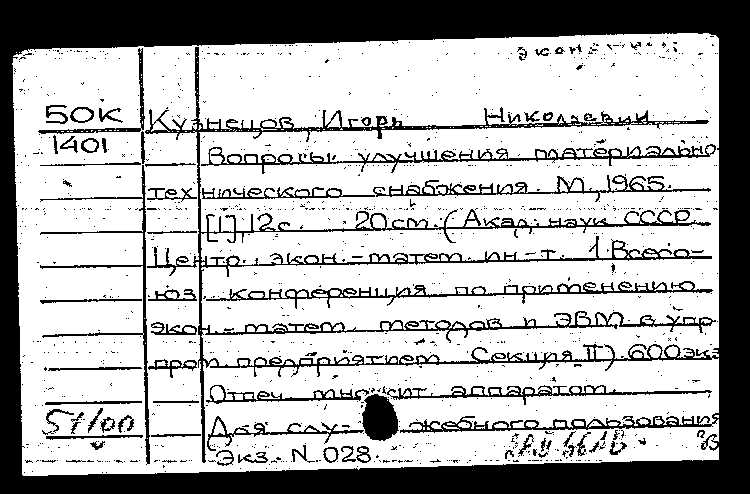 50К Кузнецов, Игорь Николаевич
1401 Вопросы улучшения материально-
технического снабжения. М., 1965.
[1], 12 с. 20 cm. (Акад. наук СССР.
Центр. экон.-матем. ин-т. 1 Всесо-
юз. конференция по применению
экон.-матем. методов и ЭВМ в упр.
пром. предприятием Секция II). 600 экз
Отпеч. множит. аппаратом.
51/00 Для слу- жебного пользования
Экз. N 028.